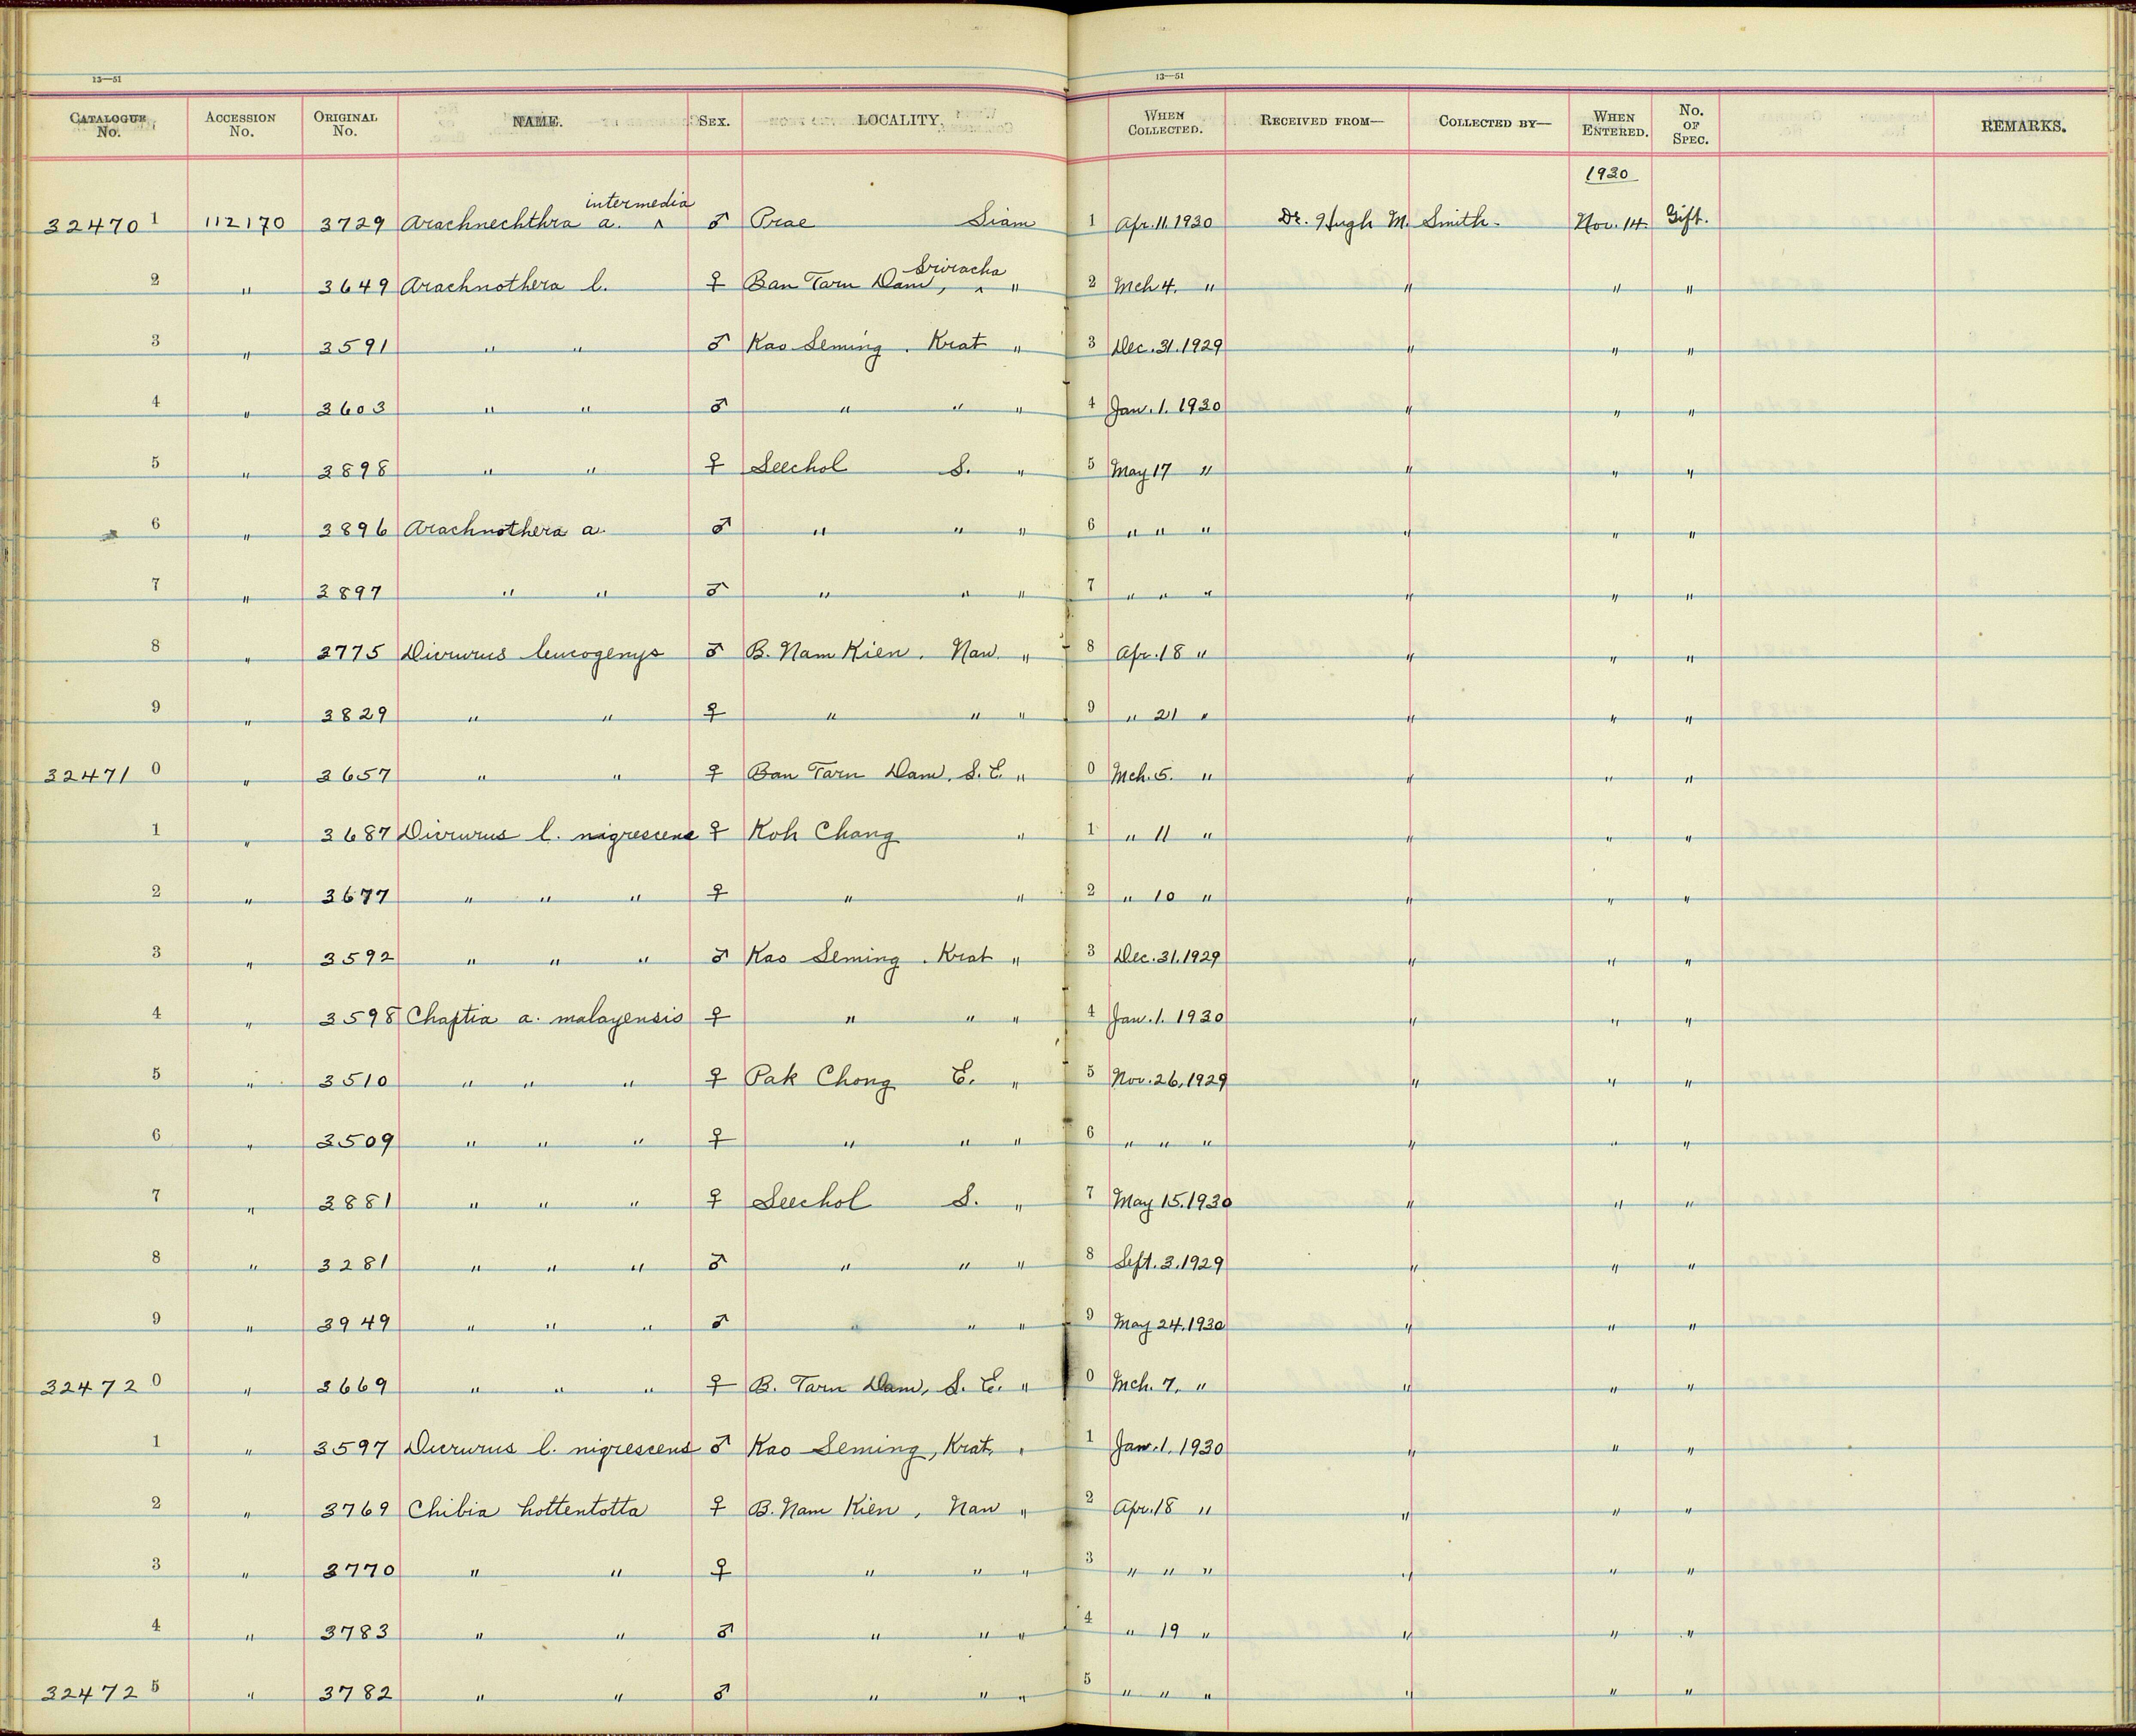 13—51 13—51
CATALOGUE No. ACCESSION No. ORIGINAL No. NAME. SEX. LOCALITY. WHEN COLLECTED. RECEIVED FROM— COLLECTED BY— WHEN ENTERED. No. OF SPEC. REMARKS.
1930
intermedia
32470 1 112170 3729 Arachnechthra a. ^ ♂ Prae Siam 1 Apr. 11. 1930 Dr. Hugh M. Smith. Nov. 14. Gift.
Sriracha
2 " 3649 Arachnothera l. ♀ Ban Tarn Dam, ^ " 2 Mch 4. " " " "
3 " 3591 " " ♂ Kao Seming. Krat " 3 Dec. 31. 1929 " " "
4 " 3603 " " ♂ " " " 4 Jan. 1. 1930 " " "
5 " 3898 " " ♀ Seechol S. " 5 May 17 " " " "
6 " 3896 Arachnothera a. ♂ " " " 6 " " " " " "
7 " 3897 " " ♂ " " " 7 " " " " " "
8 " 3775 Dicrurus leucogenys ♂ B. Nam Kien. Nan. " 8 Apr. 18 " " " "
9 " 3829 " " ♀ " " " 9 " 21 " " " "
32471 0 " 3657 " " ♀ Ban Tarn Dam, S. E. " 0 Mch. 5. " " " "
1 " 3687 Dicrurus l. nigrescens ♀ Koh Chang " 1 " 11 " " " "
2 " 3677 " " " ♀ " " 2 " 10 " " " "
3 " 3592 " " " ♂ Kao Seming. Krat " 3 Dec. 31. 1929 " " "
4 " 3598 Chaptia a. malayensis ♀ " " " 4 Jan. 1. 1930 " " "
5 " 3510 " " " ♀ Pak Chong E. " 5 Nov. 26. 1929 " " "
6 " 3509 " " " ♀ " " " 6 " " " " " "
7 " 3881 " " " ♀ Seechol S. " 7 May 15. 1930 " " "
8 " 3281 " " " ♂ " " " 8 Sept. 3. 1929 " " "
9 " 3949 " " " ♂ " " " 9 May 24. 1930 " " "
32472 0 " 3669 " " " ♀ B. Tarn Dam, S. E. " 0 Mch. 7. " " " "
1 " 3597 Dicrurus l. nigrescens ♂ Kao Seming, Krat. " 1 Jan. 1. 1930 " " "
2 " 3769 Chibia hottentotta ♀ B. Nam Kien, Nan " 2 Apr. 18 " " " "
3 " 3770 " " ♀ " " " 3 " " " " " "
4 " 3783 " " ♂ " " " 4 " 19 " " " "
32472 5 " 3782 " " ♂ " " " 5 " " " " " "